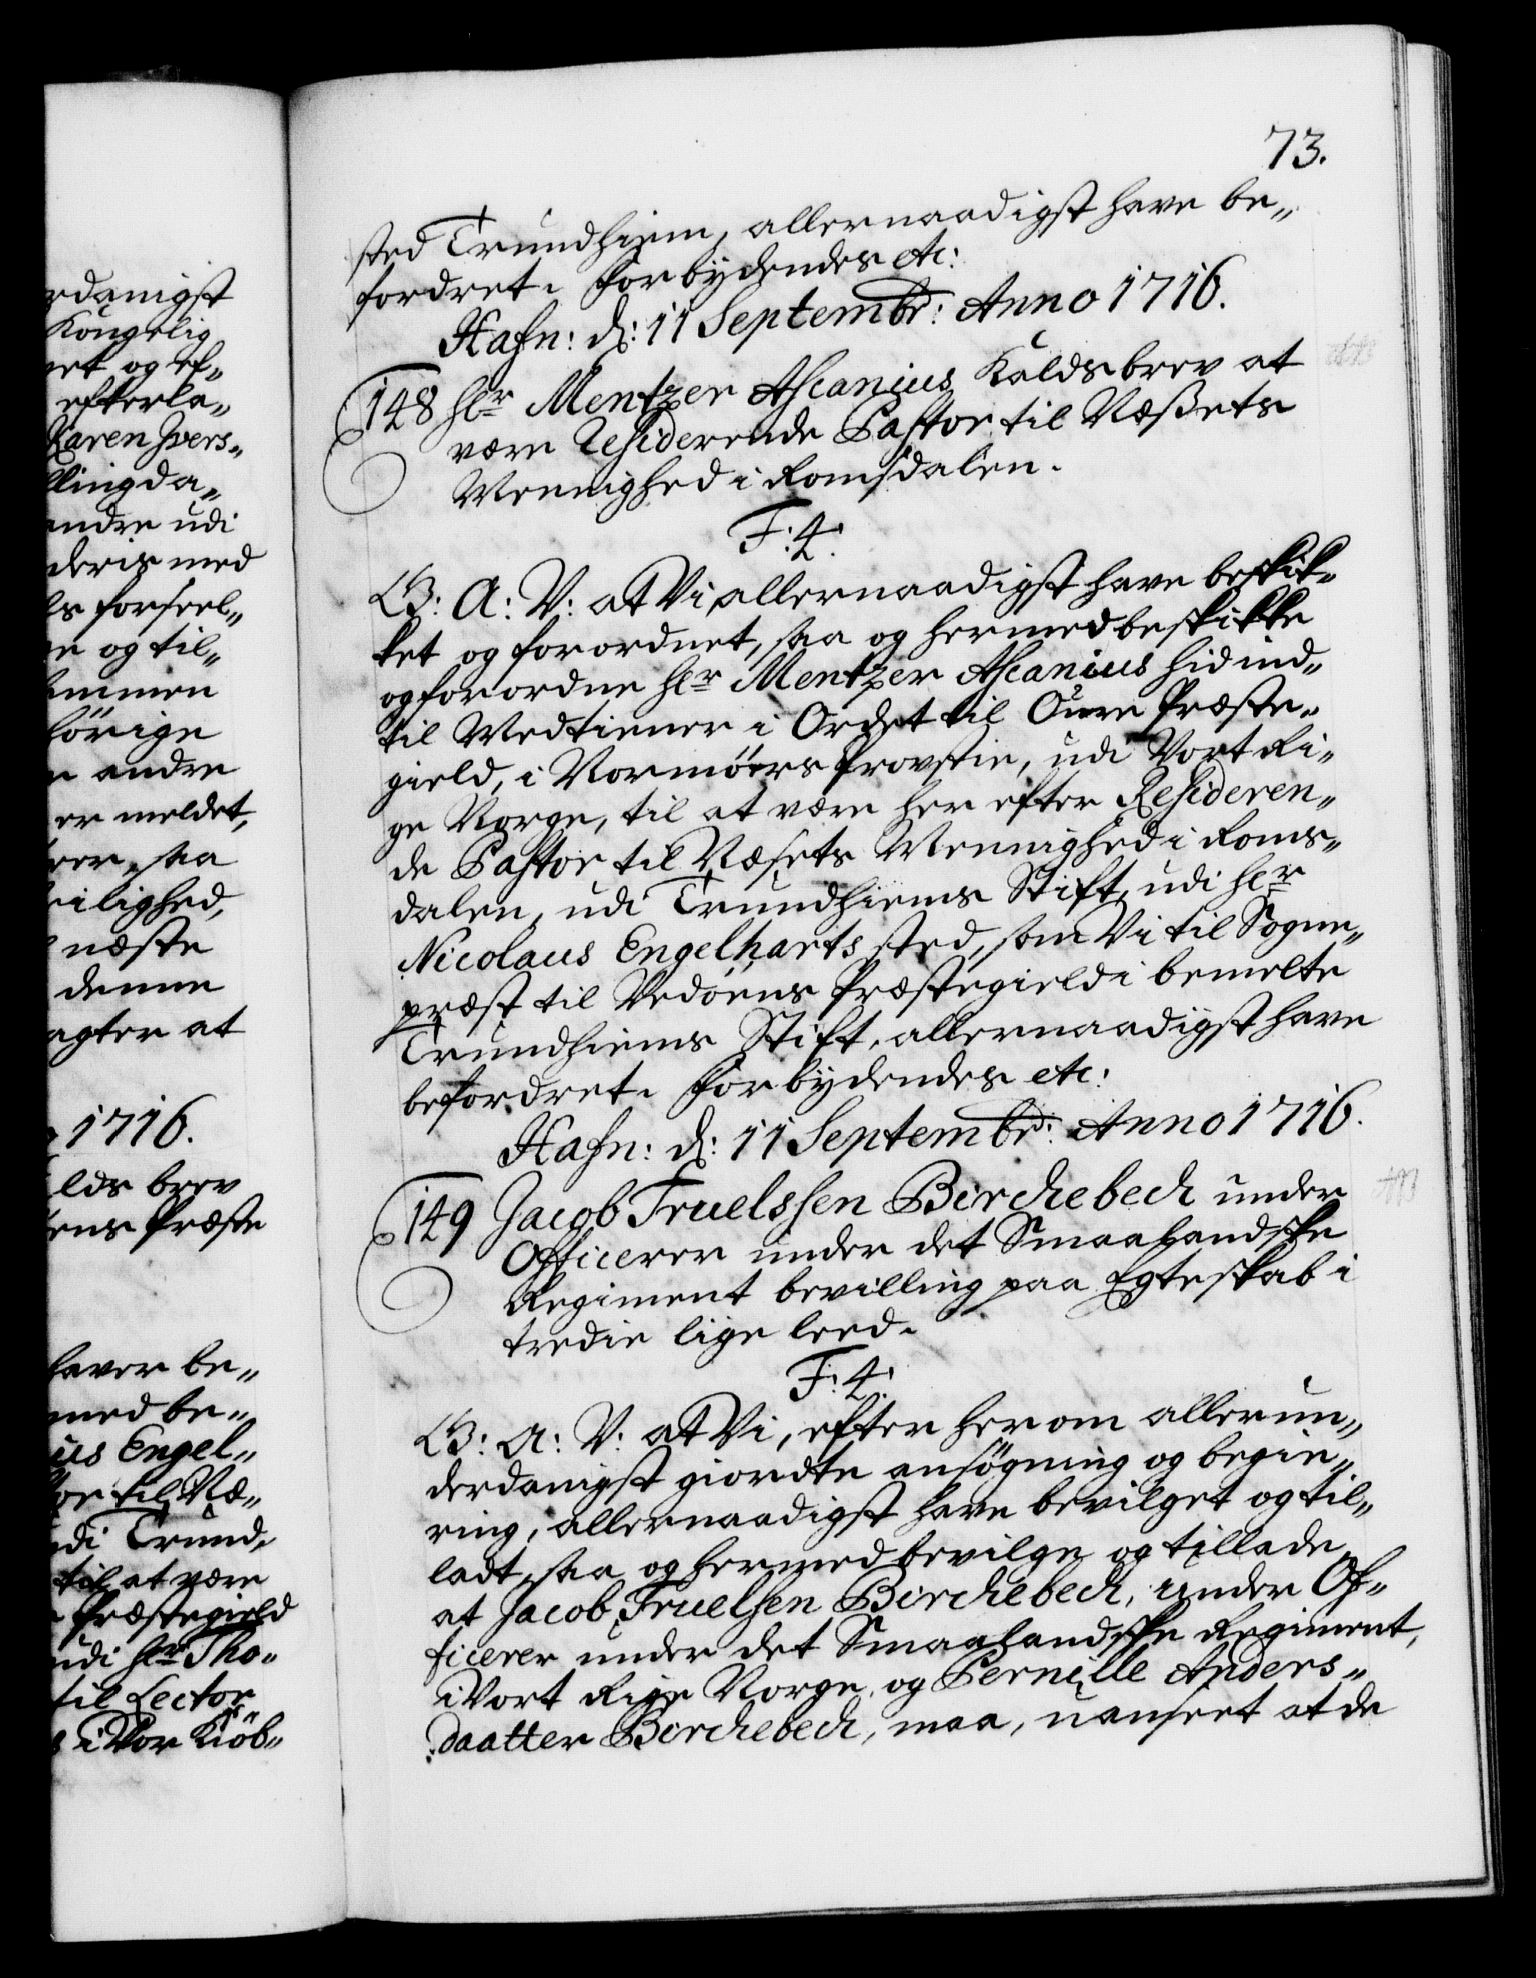 73.
sted Trundhiem, allernaadigst have be„
fordret. Forbydendes etc:
Hafn: d: 11 Septembr: Anno 1716.
148 Hr Mentzer Ascanius Kaldsbrev at
være Residerende Pastor til Næssets
Mennighed i Romsdalen.
F: 4.
G: A: V: at Vi allernaadigst have beskik„
ket og forordnet, saa og hermed beskikke
og forordne Hr Mentzer Ascanius hid ind„
til Medtiener i Ordet til Oure Præste„
gield, i Normörs Provstie, udi Vort Ri„
ge Norge, til at være her efter Resideren„
de Pastor til Næsets Mennighed i Roms„
dalen, udi Trundhiems Stift, udi Hr
Nicolaus Engelharts sted, som Vi til Sogne„
præst til Vedöens Præstegield i bemelte
Trundhiems Stift, allernaadigst have
befordret. Forbydendes etc:
Hafn: d: 11 Septembr: Anno 1716.
149 Jacob Truelssen Birchebech under
Officerer under det Smaalandske
Regiment bevilling paa Egteskab i
tredie lige leed.
F: 4.
G: A: V: at Vi, efter herom allerun„
derdanigst giordte ansögning og begie„
ring, allernaadigst have bevilget og til„
ladt, saa og hermed bevilge og tillade,
at Jacob Truelsen Birchebech, under Of„
ficerer under det Smaalandske Regiment,
i Vort Rige Norge, og Pernille Anders„
daatter Birchebech, maa, uanseet at de
rdanigst
Kongelig
et og ef„
efterla„
Karen Ivers„
llingda„
andre udi
deris med
ls forseel„
e og til„
ammen
hörige
e andre
er meldet,
eer, saa
eilighed,
næste
denne
agter at
1716.
lds brev
ens Præste
haver be„
med be„
us Engel„
or til Næ„
udi Trund„
til at være
Præstegield
udi Hr Tho„
til Lector
i Vor Kiöb„